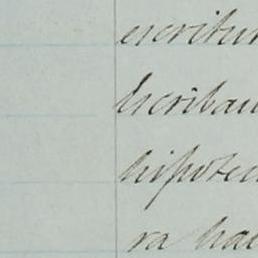 escritur
Escriban
hipotec
ra hac